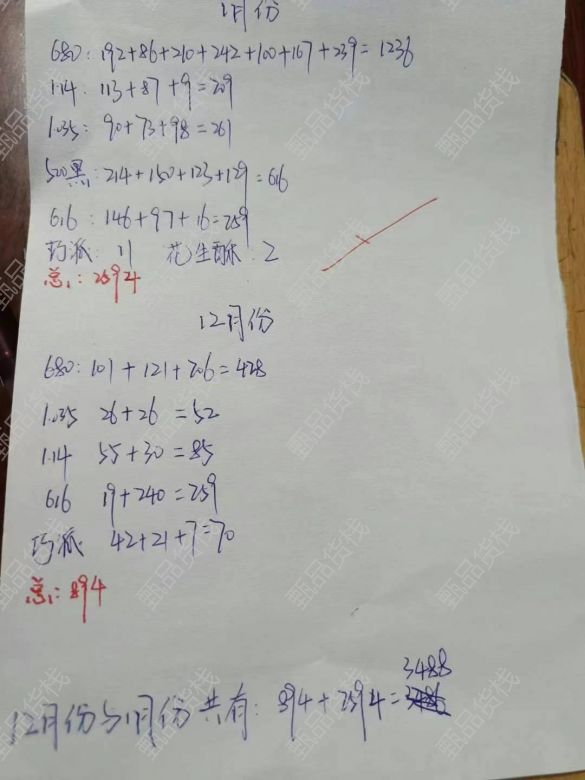 1月份
680: 192+86+210+242+100+167+239=1236
1.14: 113+87+9=209
1.035: 90+73+98=261
500黑: 214+150+123+129=616
616: 146+97+16=259
巧派: 11 花生酥: 2
总: 2594
12月份
680: 101+121+206=428
1.035 26+26=52
1.14 55+30=85
616 19+240=259
巧派 42+21+7=70
总: 894
3488
12月份与1月份共有: 894+2594=
甄品货栈